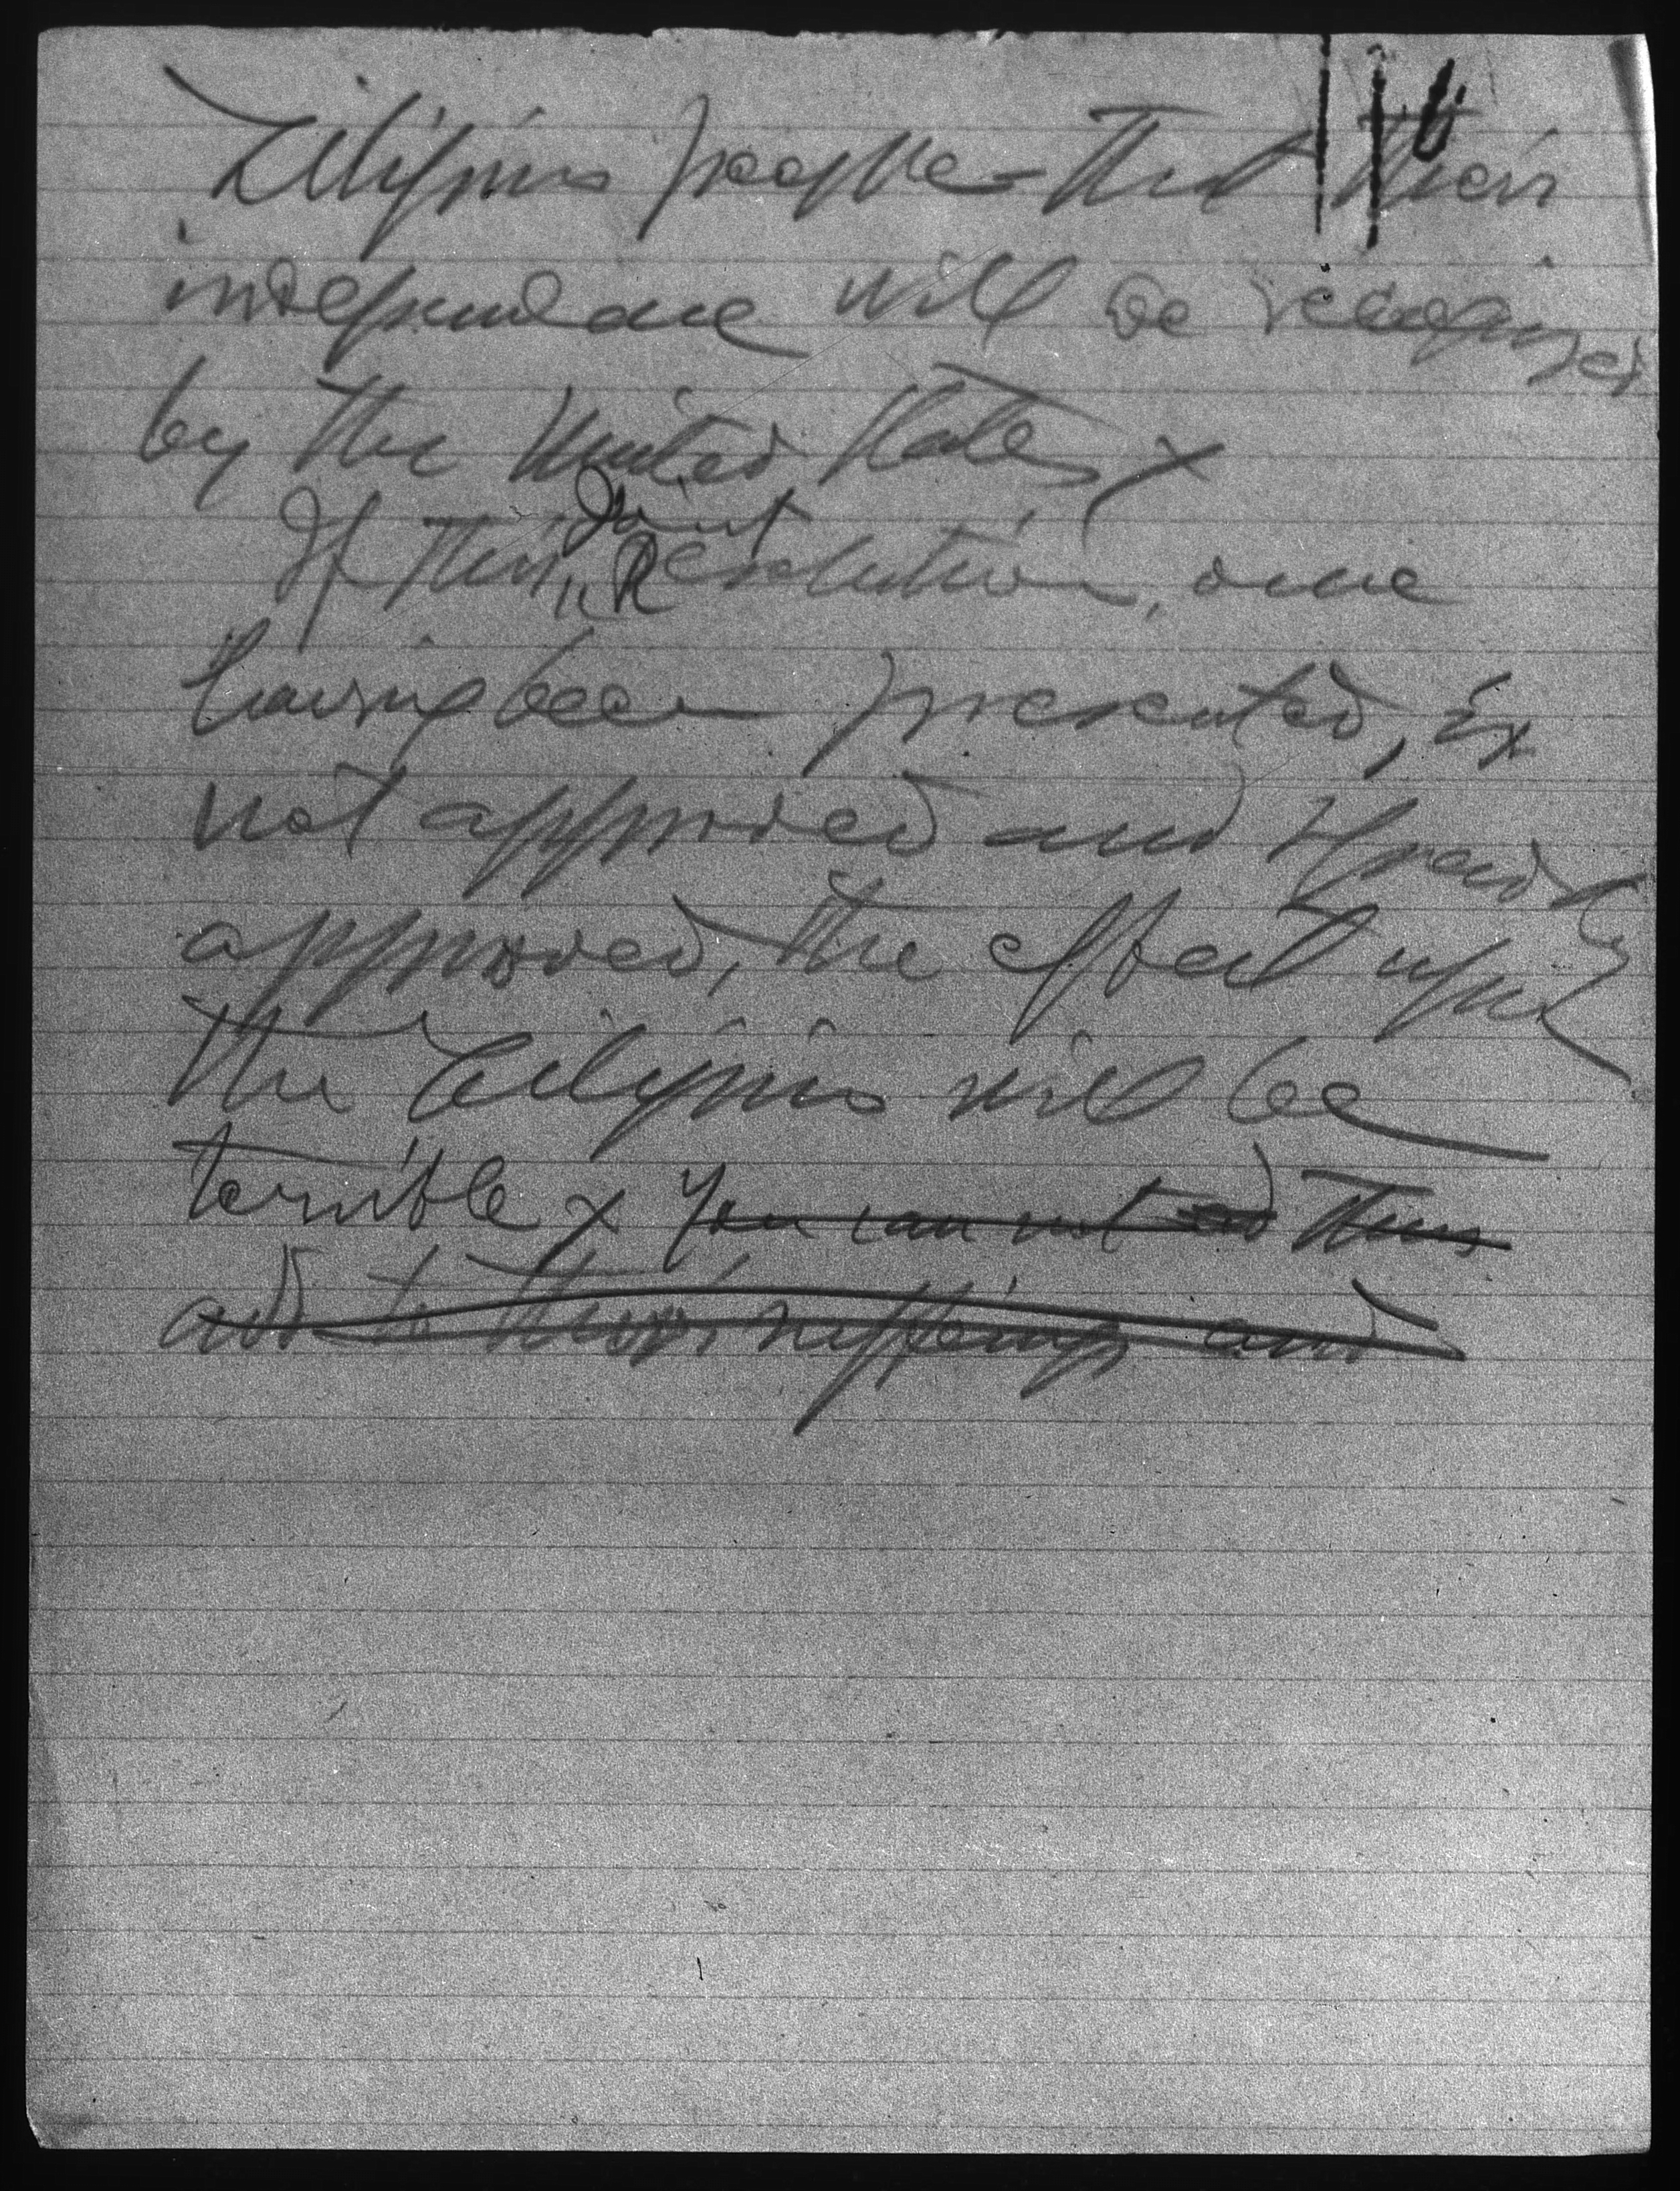 Filipino people - that their
independence will be recognized
by the United States x
If this Joint Resolution, once
having been presented, is
not approved and speedily
approved, the effect upon
the Filipinos will be
terrible x You can not add thus
add to their sufferings and